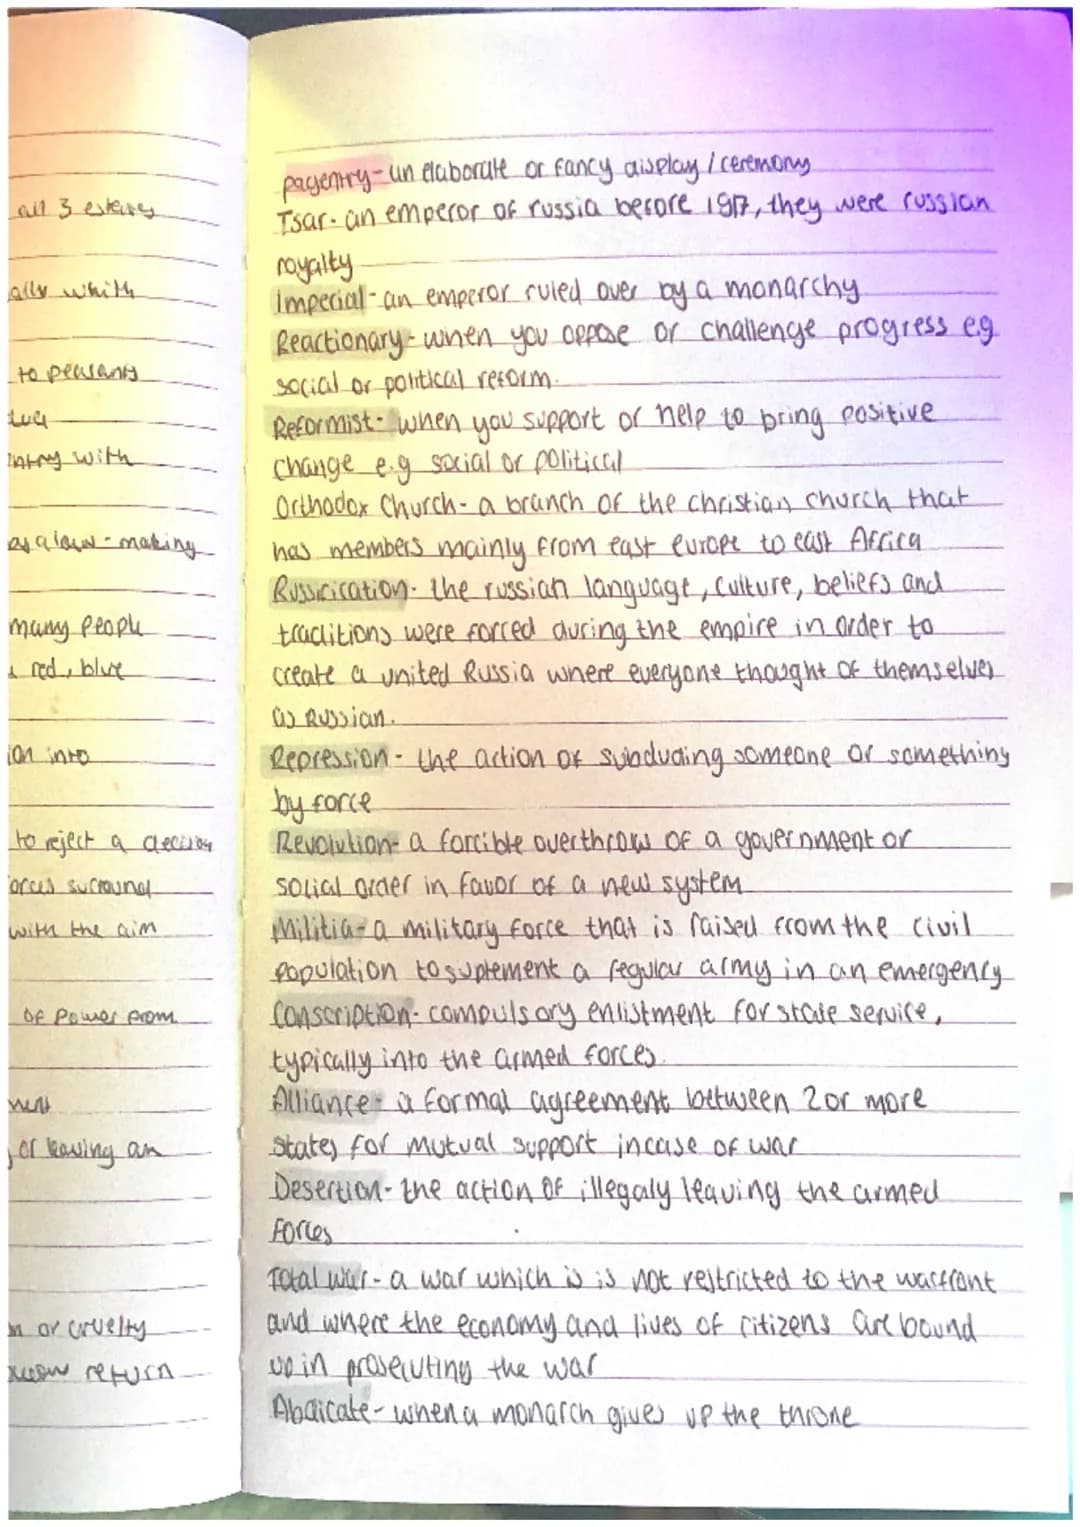 all 3 estates
ally whith
to peasants
entry with
as a law-making
many people
red, blue
ion into
to reject a decision
orces surround
with the aim
of power from
or leaving an
n or cruelty
return
pagentry - an elaborate or fancy display / ceremony
Tsar - an emperor of russia before 1917, they were russian
royalty
Imperial - an emperor ruled over by a monarchy
Reactionary - when you oppose or challenge progress e.g
social or political reform.
Reformist - when you support or help to bring positive
change e.g social or political
Orthodox Church - a branch of the christian church that
has members mainly from east europe to east Africa
Russification - the russian language, culture, beliefs and
traditions were forced during the empire in order to
create a united Russia where everyone thought of themselves
as Russian.
Repression - the action of subduding someone or something
by force
Revolution - a forcible overthrow of a government or
social order in favor of a new system
Militia - a military force that is raised from the civil
population to suplement a regular army in an emergency
Conscription - compulsory enlistment for state service,
typically into the armed forces.
Alliance - a formal agreement between 2 or more
states for mutual support incase of war
Desertion - the action of illegaly leaving the armed
forces
Total war - a war which is is not restricted to the warfront
and where the economy and lives of citizens are bound
up in prosecuting the war
Abdicate - when a monarch gives up the throne